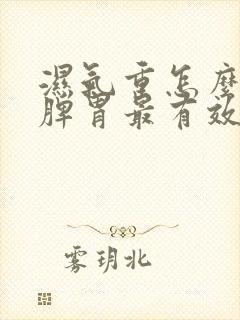 濕氣重怎麼
脾胃最有效
雾玥北